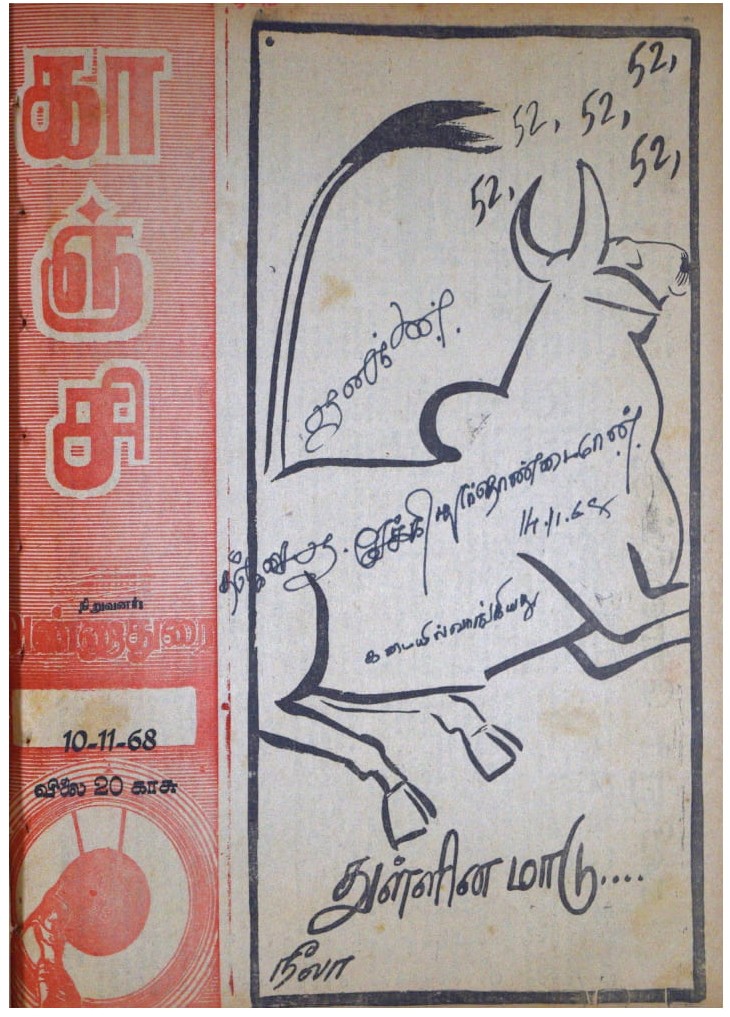 காஞ்சி
நிறுவனர்
அண்ணாதுரை
10-11-68
விலை 20 காசு
52,
52, 52,
52, 52,
14.11.68
கடையில் வாங்கியது
துள்ளின மாடு....
நீலா